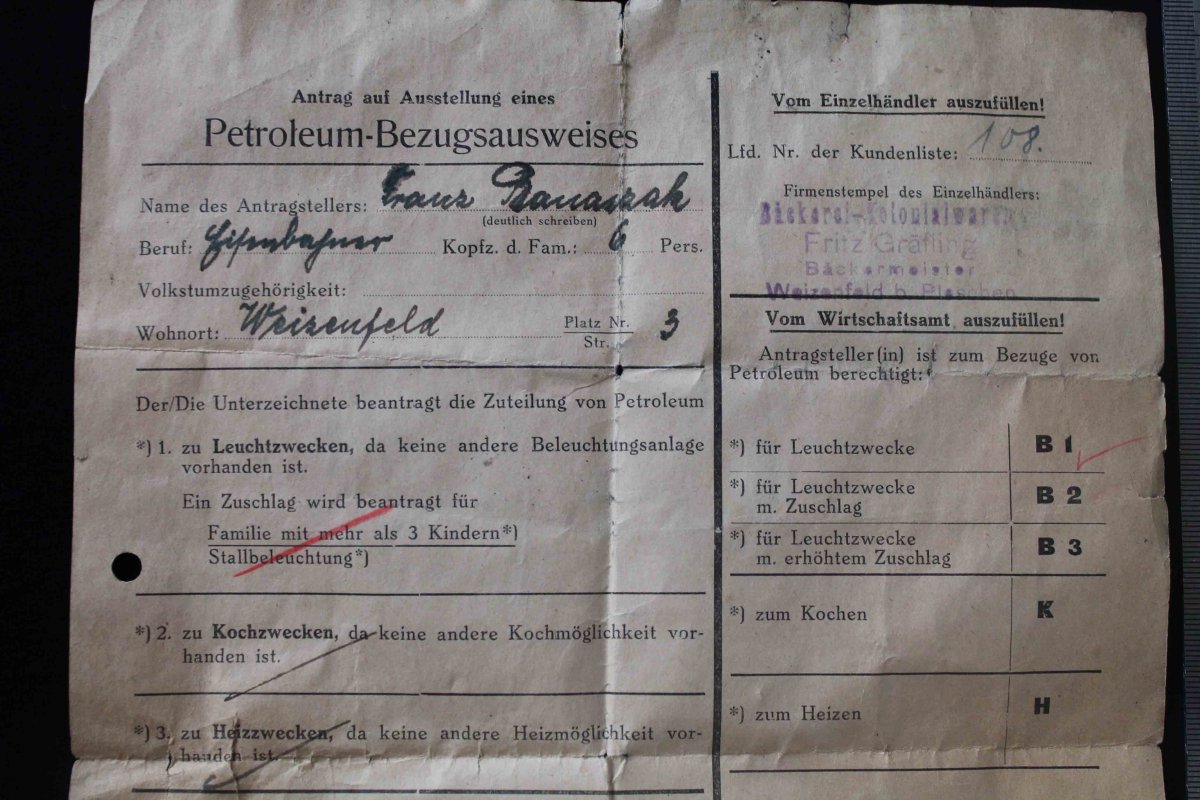 Antrag auf Ausstellung eines
Petroleum-Bezugsausweises
Name des Antragstellers: Franz Banaszak
(deutlich schreiben)
Beruf: Eisenbahner Kopfz. d. Fam.: 6 Pers.
Volkstumzugehörigkeit:
Wohnort: Weizenfeld Platz Nr. 3
Str.
Der/Die Unterzeichnete beantragt die Zuteilung von Petroleum
*) 1. zu Leuchtzwecken, da keine andere Beleuchtungsanlage
vorhanden ist.
Ein Zuschlag wird beantragt für
Familie mit mehr als 3 Kindern*)
Stallbeleuchtung*)
*) 2. zu Kochzwecken, da keine andere Kochmöglichkeit vor-
handen ist.
*) 3. zu Heizzwecken, da keine andere Heizmöglichkeit vor-
handen ist.
Vom Einzelhändler auszufüllen!
Lfd. Nr. der Kundenliste: 108.
Firmenstempel des Einzelhändlers:
Bäckerei-Kolonialwaren
Fritz Gräfling
Bäckermeister
Weizenfeld b. Pleschen
Vom Wirtschaftsamt auszufüllen!
Antragsteller(in) ist zum Bezuge von
Petroleum berechtigt:
*) für Leuchtzwecke B 1
*) für Leuchtzwecke
m. Zuschlag B 2
*) für Leuchtzwecke
m. erhöhtem Zuschlag B 3
*) zum Kochen K
*) zum Heizen H